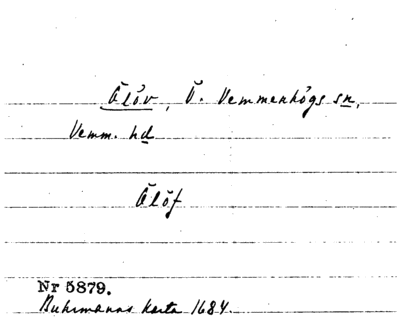 Ålöv, Ö. Vemmenhögs sn,
Vemm. hd
Ålöf
Nr 5879.
Buhrmanns karta 1684.